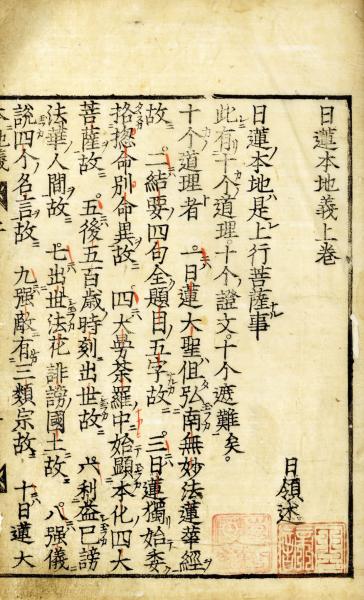 日蓮本地義上卷
日領述
日蓮本地是上行菩薩事
此有十个道理十个證文十个遮難矣。
十个道理者　一日蓮大聖但弘南無妙法蓮華經
故　二結要四句全題目五字故　三日蓮獨始委
揔命別命異故　四大曼荼羅中始顯本化四大
菩薩故　五後五百歳時刻出世故　六利益已謗
法華人間故　七出世法花誹謗國土故　八强儀
説四个名言故　九强敵有三類宗故　十日蓮大